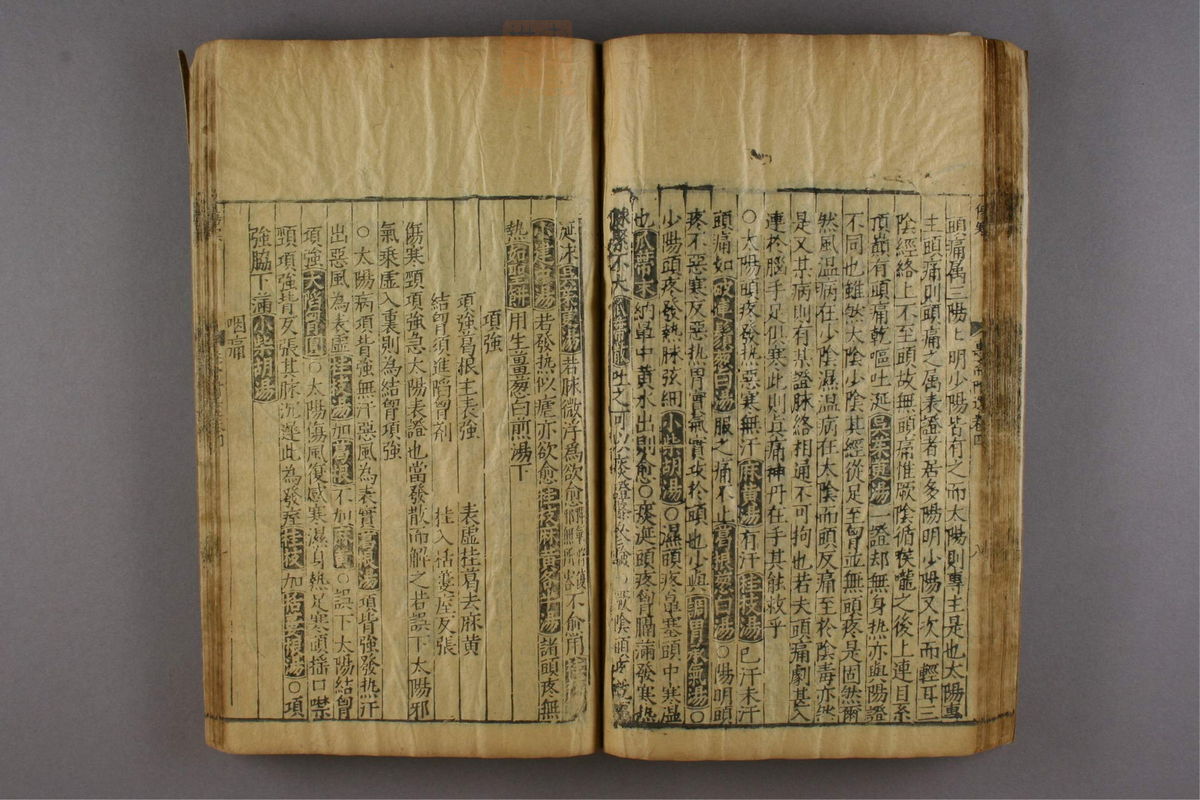 頭痛属三陽七明少陽皆有之而太陽則專主是也太陽專
主頭痛則頭痛之属表證者居多陽明少陽又次而輕耳三
陰經絡上不至頭故無頭痛惟厥陰循喉嚨之後上連目系
頂巔有頭痛乾嘔吐涎吳茱萸湯一證却無身熱亦與陽證
不同也雖然太陰少陰其經從足至胷並無頭疼是固然爾
然風温病在少陰濕温病在太陰而頭反痛至於陰毒亦然
是又某病則有某證脉絡相通不可拘也若夫頭痛劇甚入
連於腦手足俱寒此則真痛神丹在手其能救乎
○太陽頭疼發熱惡寒無汗麻黄湯有汗桂枝湯已汗未汗
頭痛如破連鬚葱白湯服之痛不止葛根葱白湯○陽明頭
疼不惡寒反惡熱胃實氣實攻於頭也少與調胃承氣湯○
少陽頭疼發熱脉弦細小柴胡湯○濕頭疼鼻塞頭中寒濕
也瓜蒂末納鼻中黄水出則愈○痰涎頭疼胷膈滿發寒熱
脉緊不大瓜蒂散吐之可以 陰頭疼乾嘔
涎沫吳茱萸湯若脉微浮為欲愈 不愈用
小建中湯若發熱似瘧亦欲愈桂枝麻黄各半湯諸頭疼無
熱如聖餅用生薑葱白煎湯下
項強
項強葛根主表強 表虚桂葛去麻黄
結胷須進陷胷剤 桂入括蔞痓反張
傷寒頸項強急太陽表證也當發散而解之若誤下太陽邪
氣乘虚入裏則為結胷項強
○太陽病項背強無汗惡風為表實葛根湯項背強發熱汗
出惡風為表虚桂枝湯加葛根不加麻黄○誤下太陽結胷
項強大陷胷圓○太陽傷風復感寒濕身熱足寒頭搖口噤
頸項強背反張其脉沉遲此為發痓桂枝加括蔞根湯○項
強脇下滿小柴胡湯
咽痛